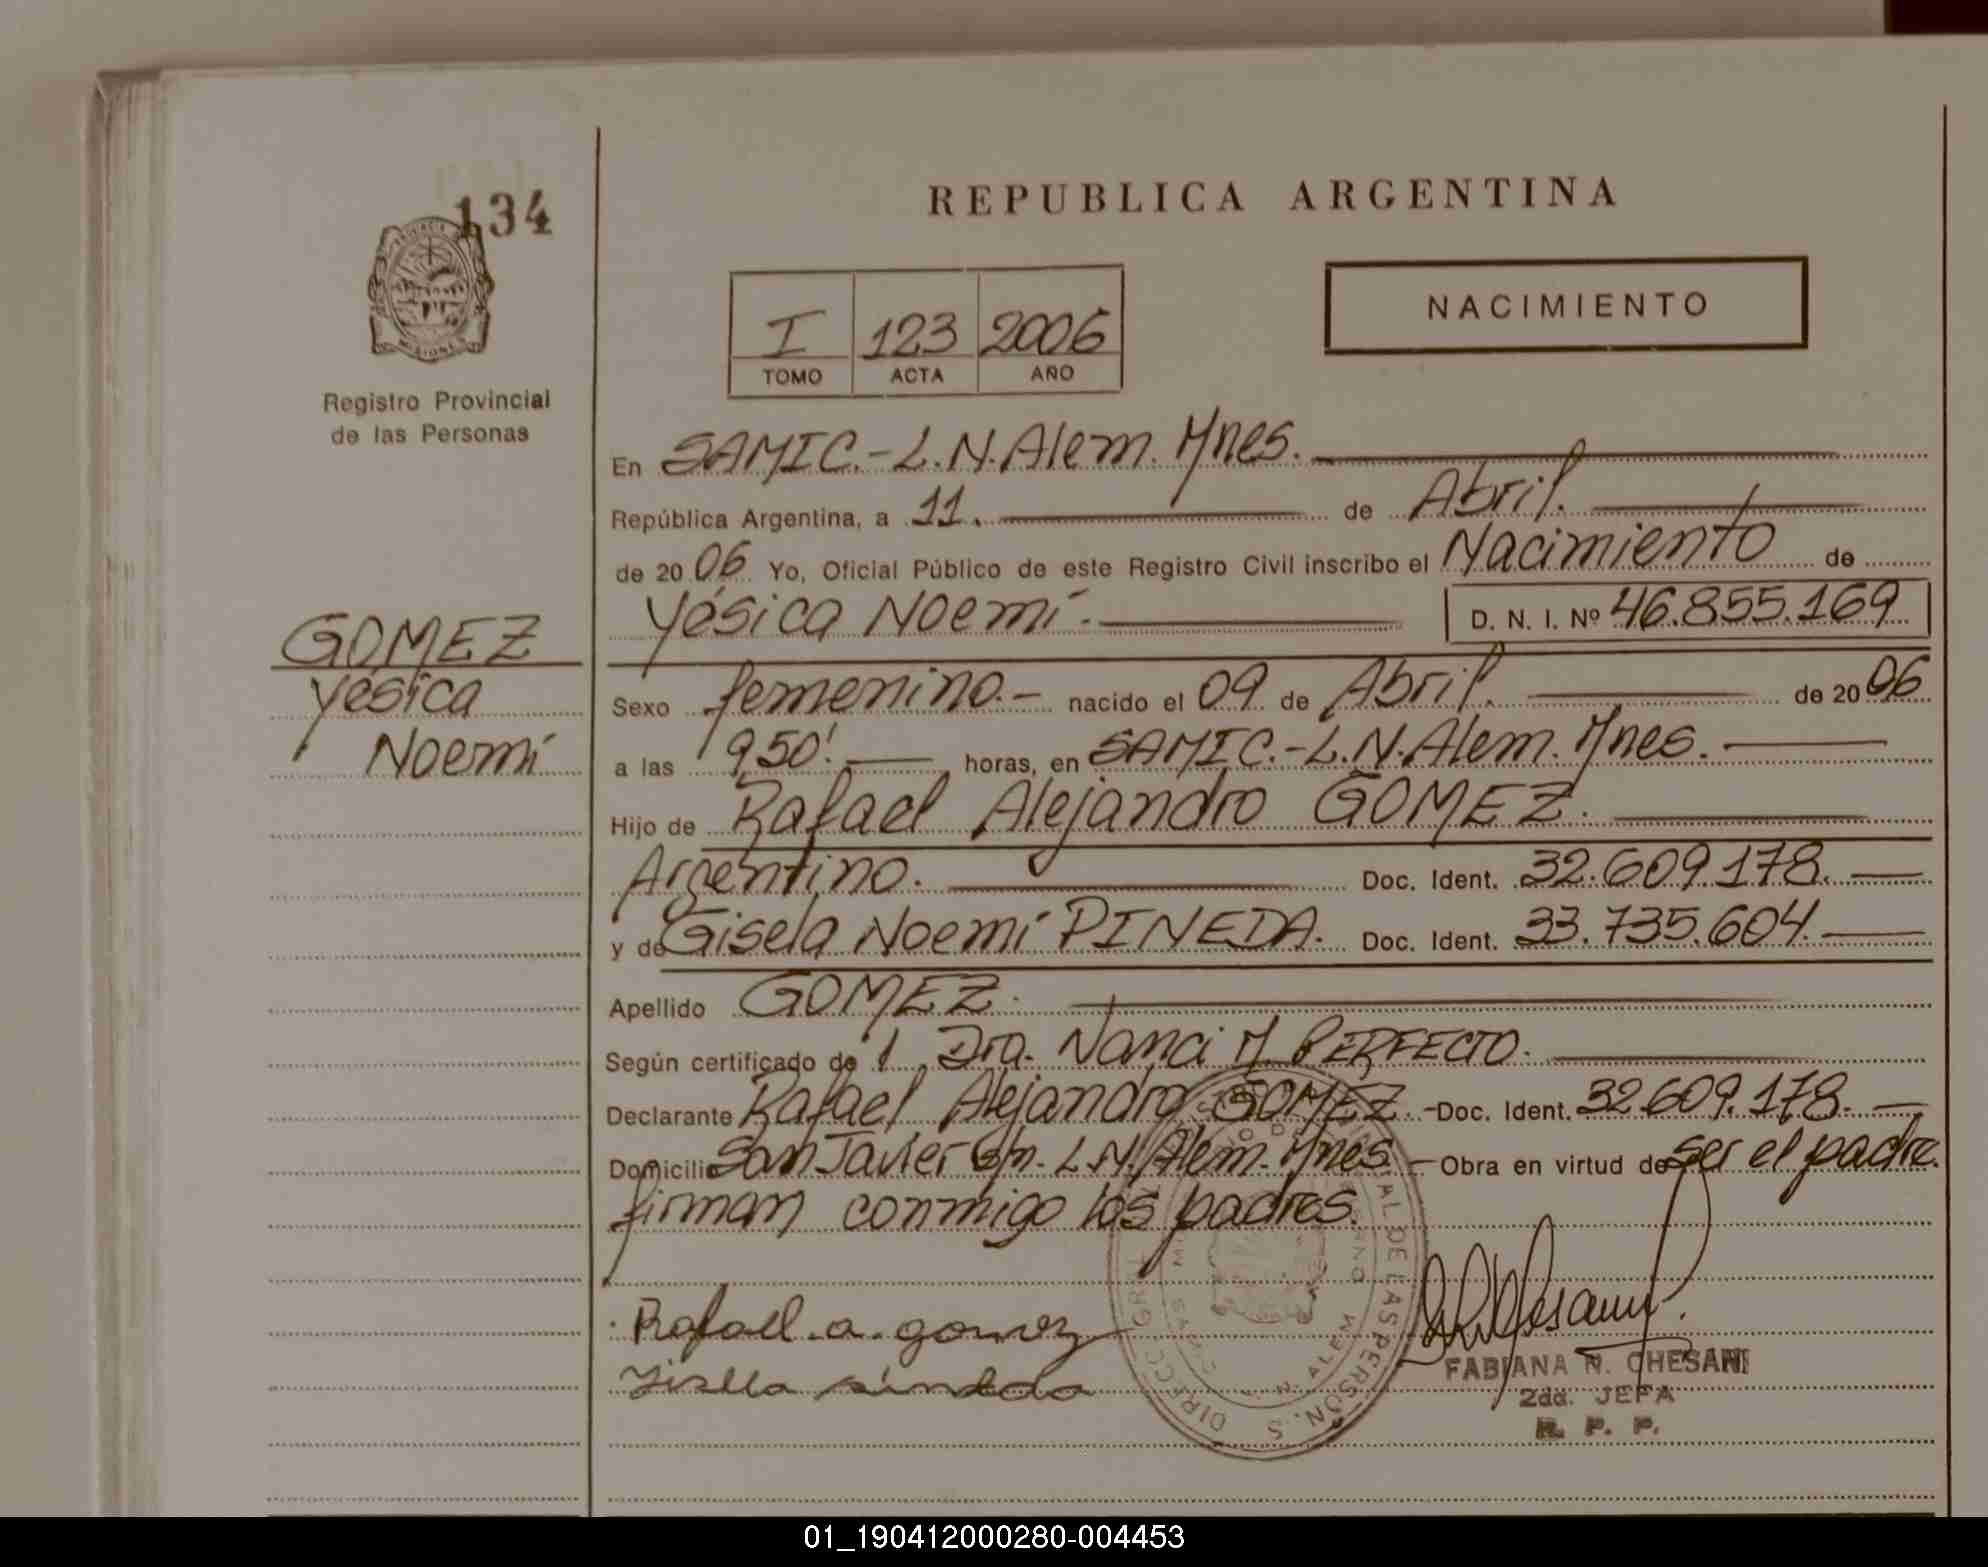 134
REPUBLICA ARGENTINA
NACIMIENTO
I 123 2006
TOMO ACTA AÑO
Registro Provincial
de las Personas
MISIONES
En SAMIC.-L.N.Alem. Mnes.
República Argentina, a 11. de Abril.
de 20 06 Yo, Oficial Público de este Registro Civil inscribo el Nacimiento de
Yésica Noemí. D. N. I. Nº 46.855.169
GOMEZ
Yésica
Noemí
Sexo femenino.- nacido el 09 de Abril. de 20 06
a las 9,50'. horas, en SAMIC.-L.N.Alem. Mnes.
Hijo de Rafael Alejandro GOMEZ.
Argentino. Doc. Ident. 32.609.178.
y de Gisela Noemí PINEDA. Doc. Ident. 33.735.604.
Apellido GOMEZ.
Según certificado de Dra. Nanci M. PERFECTO.
Declarante Rafael Alejandro GOMEZ.- Doc. Ident. 32.609.178.
Domicilio San Javier s/n. L.N.Alem. Mnes.- Obra en virtud de ser el padre.
firman conmigo los padres.
Rafael.a.gomez
FABIANA N. CHESANI
2da. JEFA
R. P. P.
01_190412000280-004453